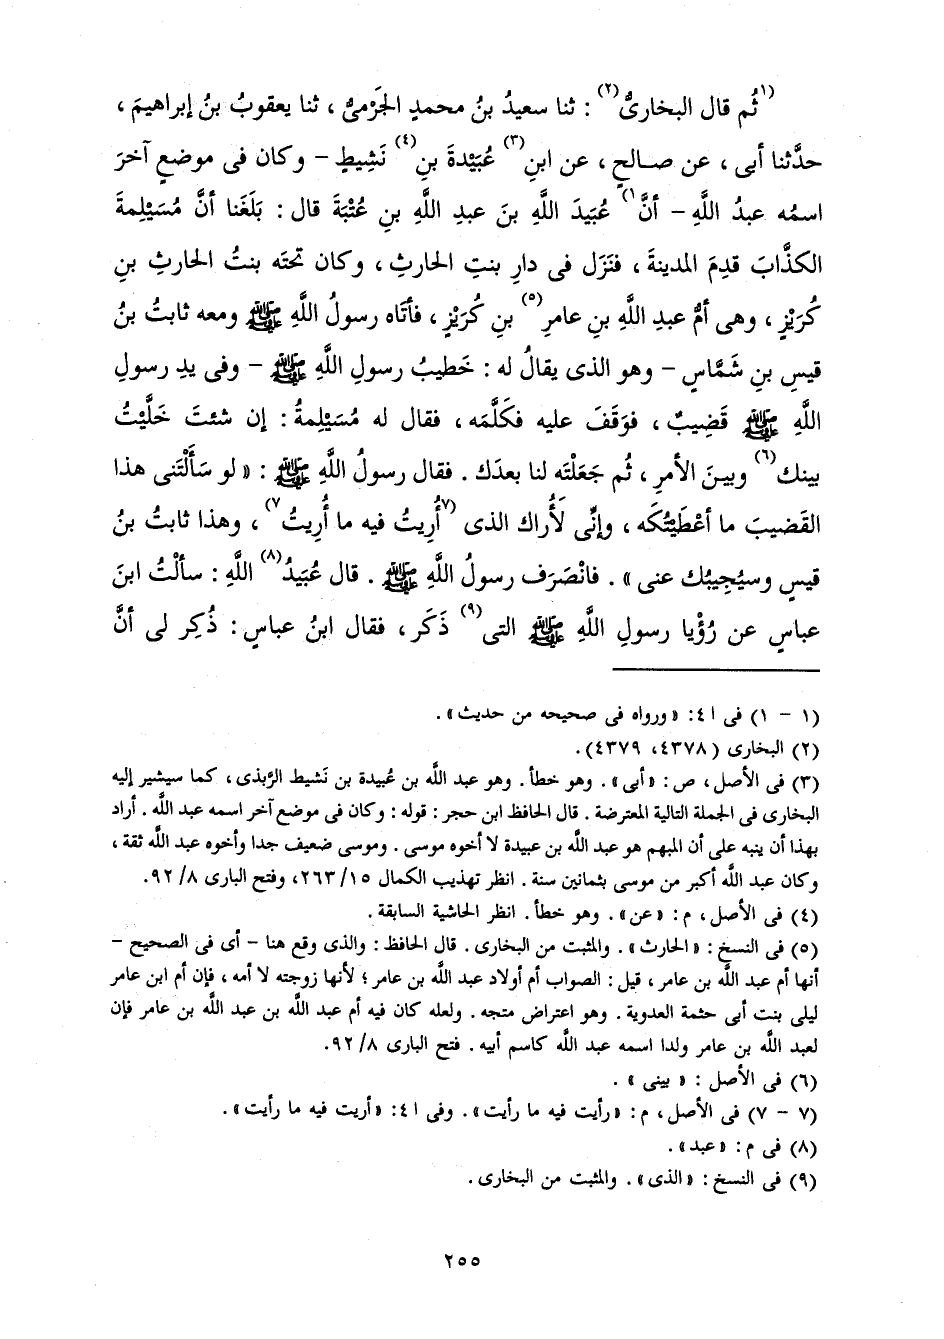 (١ثُم قال البخارىُّ(٢) : ثنا سعيدُ بنُ محمدٍ الجَرْمىُّ ، ثنا يعقوبُ بنُ إبراهيمَ ،
حدَّثنا أبى ، عن صالحٍ ، عن ابنِ(٣) عُبَيْدةَ بنِ(٤) نَشِيطٍ – وكان فى موضعٍ آخرَ
اسمُه عبدُ اللَّهِ – أنَّ١) عُبَيدَ اللَّهِ بنَ عبدِ اللَّهِ بنِ عُتْبَةَ قال : بَلَغَنا أنَّ مُسَيْلِمةَ
الكذَّابَ قدِمَ المدينةَ ، فنَزَل فى دارِ بنتِ الحارثِ ، وكان تحتَه بنتُ الحارثِ بنِ
كُرَيْزٍ ، وهى أمُّ عبدِ اللَّهِ بنِ عامرِ(٥) بنِ كُرَيْزٍ ، فأتَاه رسولُ اللَّهِ ﷺ ومعه ثابتُ بنُ
قيسِ بنِ شَمَّاسٍ – وهو الذى يقالُ له : خَطيبُ رسولِ اللَّهِ ﷺ – وفى يدِ رسولِ
اللَّهِ ﷺ قَضِيبٌ ، فوَقَفَ عليه فكَلَّمَه ، فقال له مُسَيْلِمةُ : إن شئتَ خَلَّيْتُ
بينك(٦) وبينَ الأمرِ ، ثُم جَعَلْتَه لنا بعدَك . فقال رسولُ اللَّهِ ﷺ : « لو سَأَلْتَنى هذا
القَضيبَ ما أعْطَيْتُكَه ، وإنِّى لَأُراك الذى (٧أُرِيتُ فيه ما أُرِيتُ٧) ، وهذا ثابتُ بنُ
قيسٍ وسيُجِيبُك عنى » . فانْصَرَف رسولُ اللَّهِ ﷺ . قال عُبَيدُ(٨) اللَّهِ : سألْتُ ابنَ
عباسٍ عن رُؤْيا رسولِ اللَّهِ ﷺ التى(٩) ذَكَر ، فقال ابنُ عباسٍ : ذُكِر لى أنَّ
(١ – ١) فى ا ٤: « ورواه فى صحيحه من حديث » .
(٢) البخارى (٤٣٧٨، ٤٣٧٩).
(٣) فى الأصل ، ص : « أبى » . وهو خطأ . وهو عبد اللَّه بن عبيدة بن نَشيط الرَّبذى ، كما سيشير إليه
البخارى فى الجملة التالية المعترضة . قال الحافظ ابن حجر : قوله : وكان فى موضع آخر اسمه عبد اللَّه . أراد
بهذا أن ينبه على أن المبهم هو عبد اللَّه بن عبيدة لا أخوه موسى . وموسى ضعيف جدا وأخوه عبد اللَّه ثقة ،
وكان عبد اللَّه أكبر من موسى بثمانين سنة . انظر تهذيب الكمال ١٥/ ٢٦٣، وفتح البارى ٨/ ٩٢.
(٤) فى الأصل ، م : « عن » . وهو خطأ . انظر الحاشية السابقة .
(٥) فى النسخ : « الحارث » . والمثبت من البخارى . قال الحافظ : والذى وقع هنا – أى فى الصحيح –
أنها أم عبد اللَّه بن عامر ، قيل : الصواب أم أولاد عبد اللَّه بن عامر ؛ لأنها زوجته لا أمه ، فإن أم ابن عامر
ليلى بنت أبى حثمة العدوية . وهو اعتراض متجه . ولعله كان فيه أم عبد اللَّه بن عبد اللَّه بن عامر فإن
لعبد اللَّه بن عامر ولدا اسمه عبد اللَّه كاسم أبيه . فتح البارى ٨/ ٩٢.
(٦) فى الأصل : « بينى » .
(٧ – ٧) فى الأصل ، م : « رأيت فيه ما رأيت » . وفى ا ٤: « أريت فيه ما رأيت » .
(٨) فى م : « عبد » .
(٩) فى النسخ : « الذى » . والمثبت من البخارى .
٢٥٥